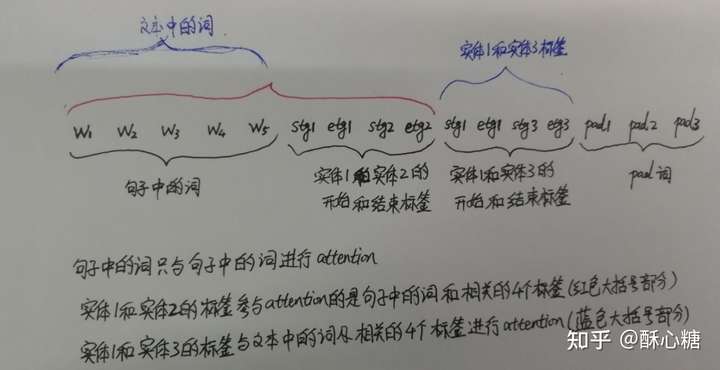 文本中的词
实体1和实体3标签
W1 W2 W3 W4 W5 stg1 etg1 stg2 etg2 stg1 etg1 stg3 etg3 pad1 pad2 pad3
句子中的词
实体1和实体2的
开始和结束标签
实体1和实体3的
开始和结束标签
pad词
句子中的词只与句子中的词进行attention
实体1和实体2的标签参与attention的是句子中的词和相关的4个标签(红色大括号部分)
实体1和实体3的标签与文本中的词及相关的4个标签进行attention(蓝色大括号部分)
知乎 @酥心糖